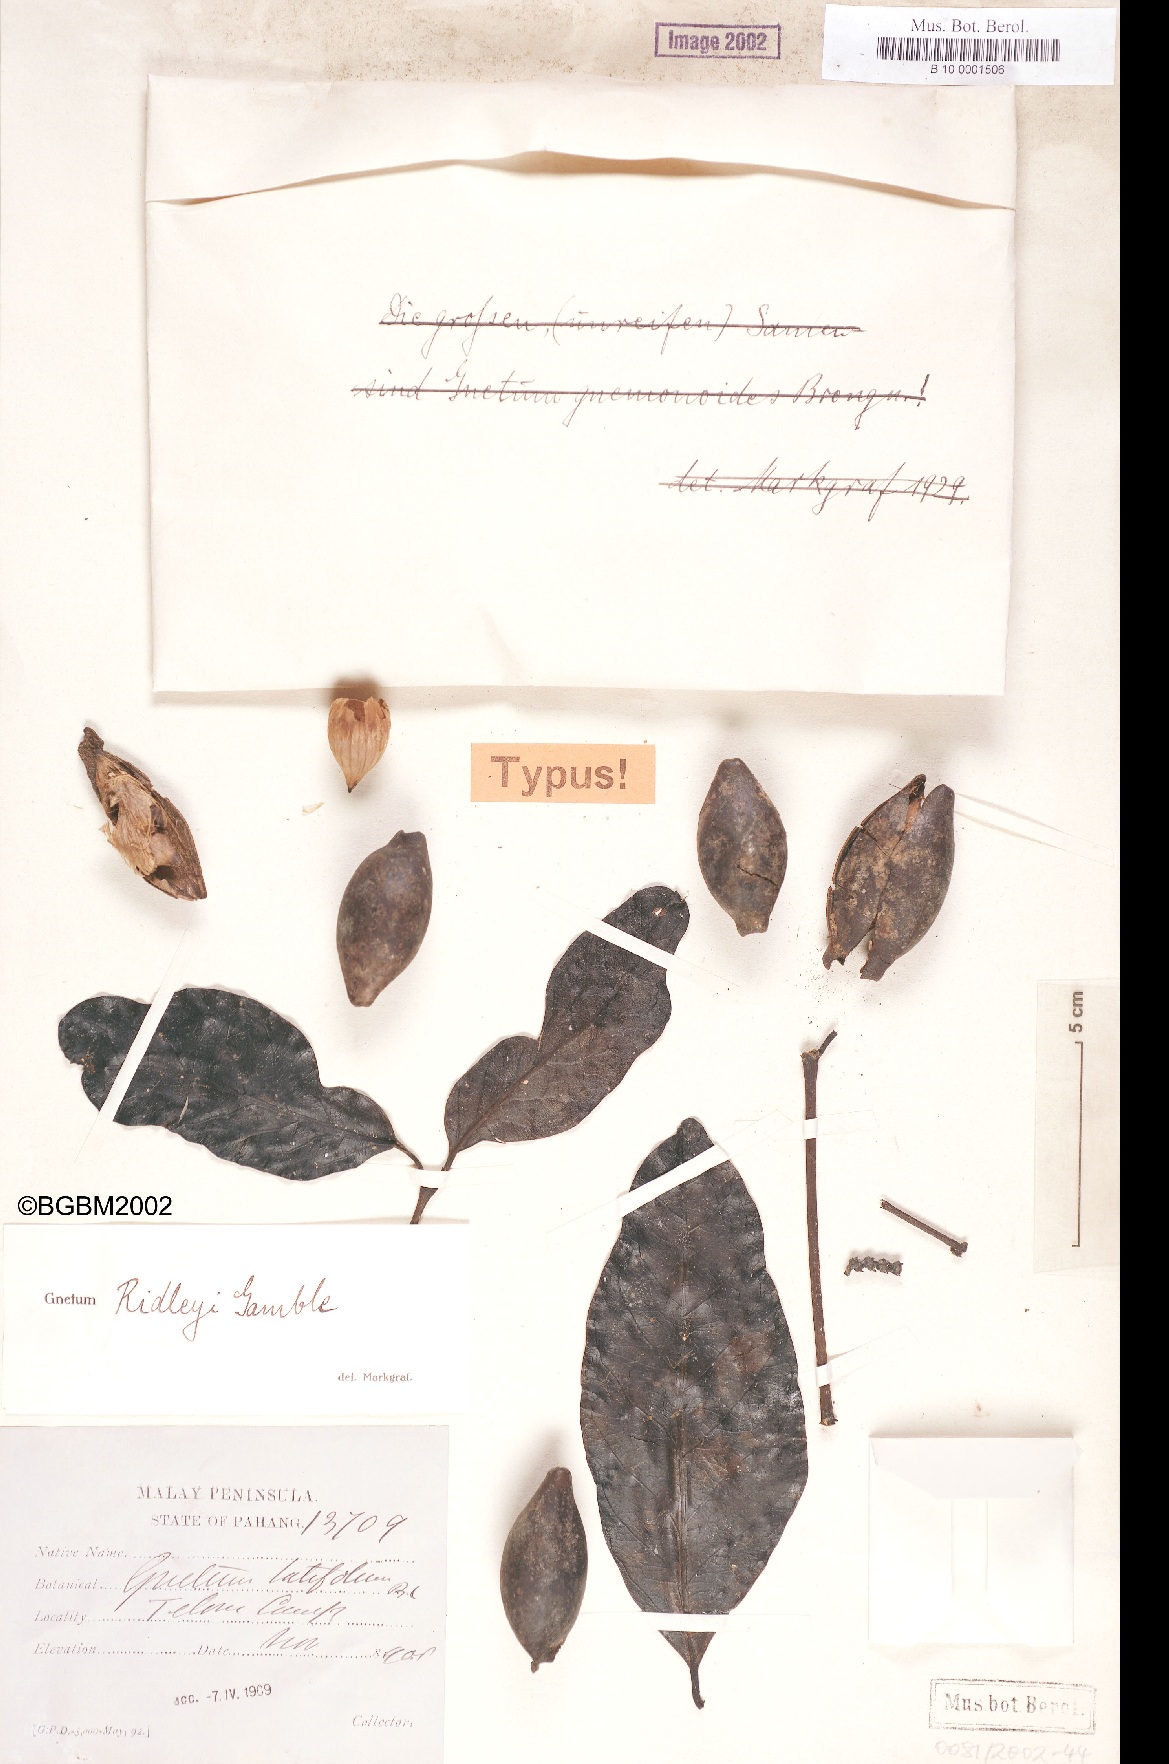 Image 2002
Mus. Bot. Berol.
B 10 0001506
Die grossen, (unreifen) Samen
sind Gnetum gnemonoides Brongn.!
det. Markgraf 1929.
Typus!
5 cm
©BGBM2002
Gnetum Ridleyi Gamble
det. Markgraf.
MALAY PENINSULA.
STATE OF PAHANG, 13709
Native Name
Botanical Gnetum latifolium Bl
Locality Telom Camp
Elevation Date Nov 1908
acc. -7. IV. 1909
Collector:
[G.P.D.-5,000-May, 94.]
Mus bot Berol.
0081/2002-44